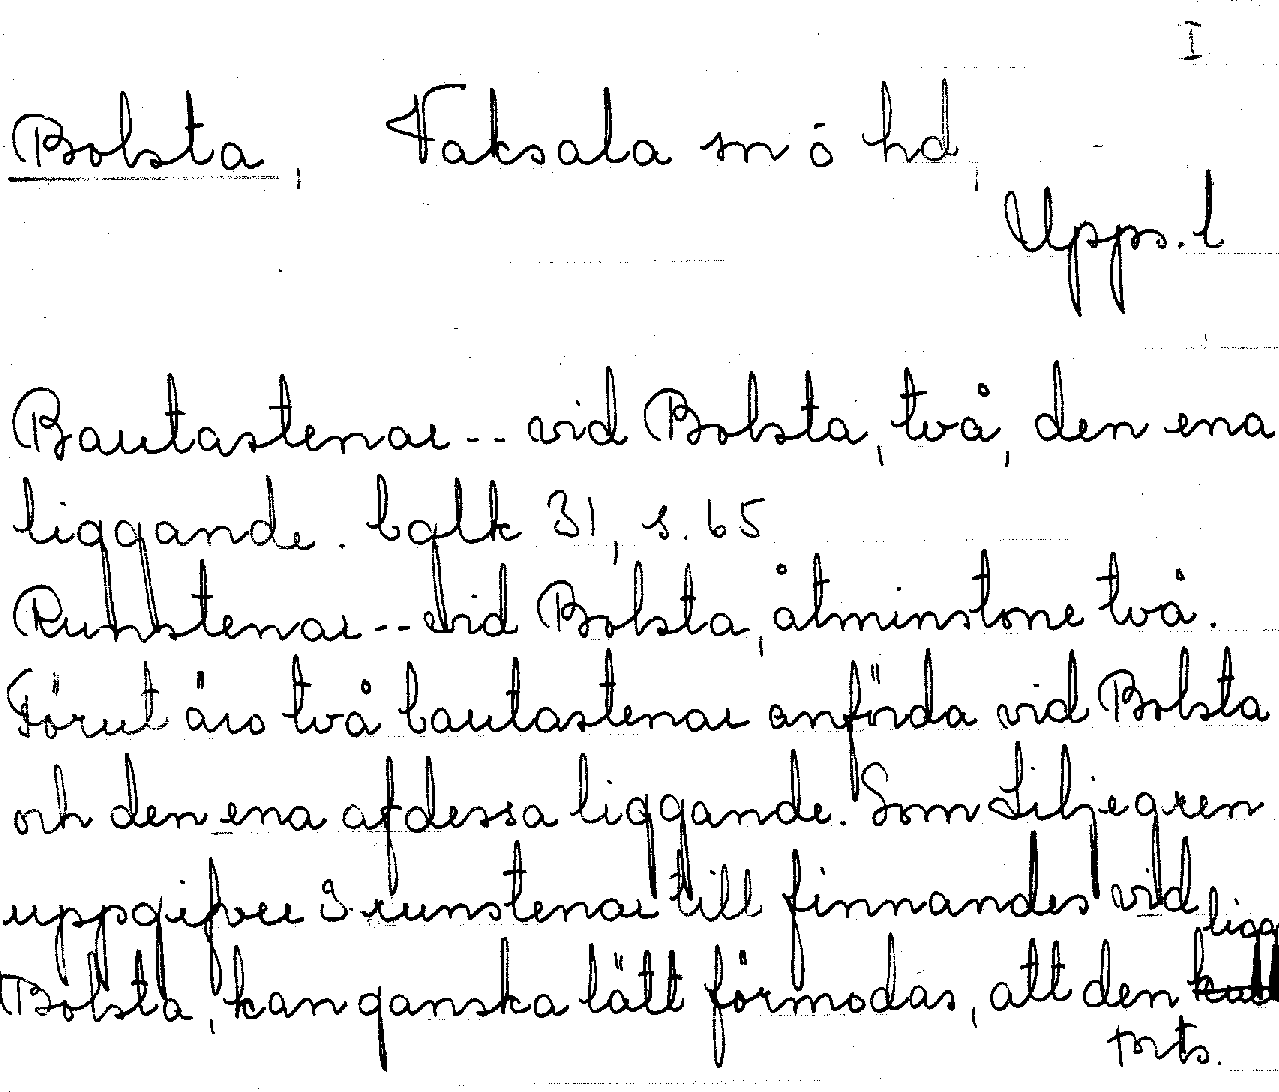 I
Bolsta, Vaksala sn ō hd,
Upps. l
Bautastenar -- vid Bolsta, två, den ena
liggande. bglk 31, s. 65
Runstenar -- vid Bolsta, åtminstone två.
Förut äro två bautastenar anförda vid Bolsta
och den ena af dessa liggande. Som Liljegren
uppgifver 3 runstenar till finnandes vid
Bolsta, kan ganska lätt förmodas, att den ligg
forts.